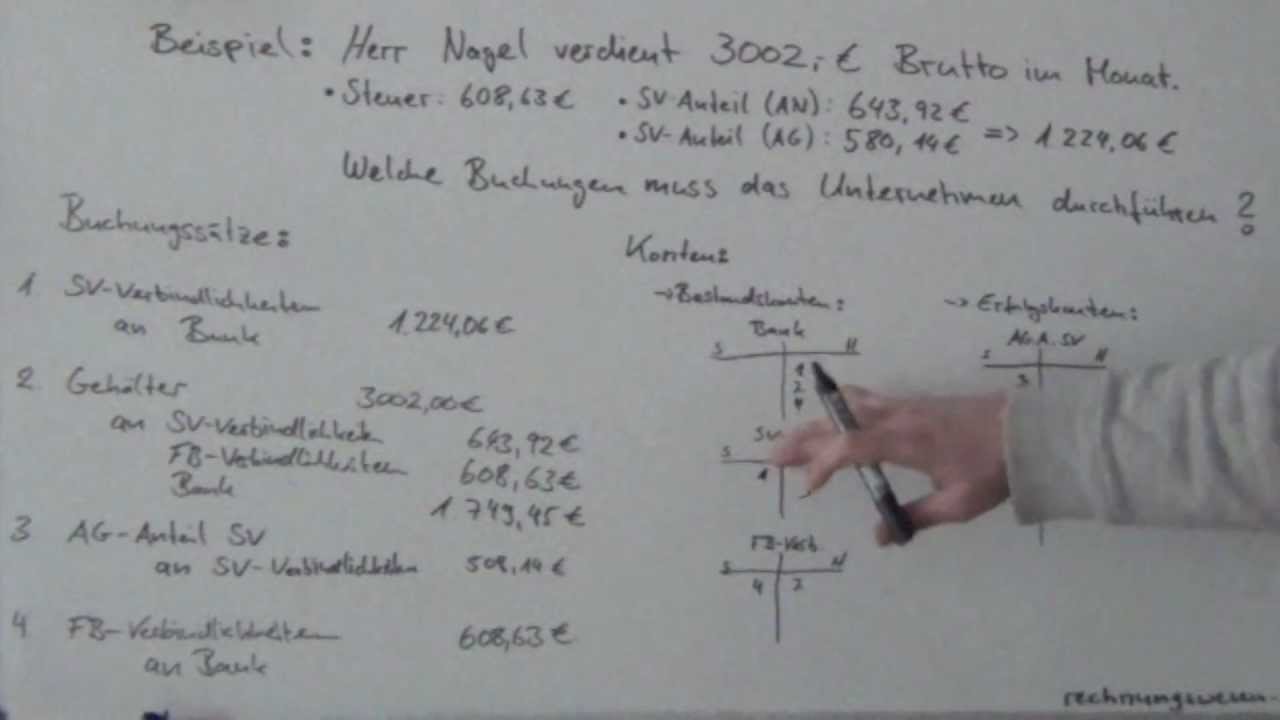 Beispiel: Herr Nagel verdient 3002,- € Brutto im Monat.
• Steuer: 608,63 € • SV-Anteil (AN): 643,92 €
• SV-Anteil (AG): 580,14 € => 1 224,06 €
Welche Buchungen muss das Unternehmen durchführen ?
Buchungssätze:
1 SV-Verbindlichkeiten
an Bank 1.224,06 €
2 Gehälter 3002,00 €
an SV-Verbindlichkeit 643,92 €
FB-Verbindlichkeiten 608,63 €
Bank 1 749,45 €
3 AG-Anteil SV
an SV-Verbindlichkeiten 508,14 €
4 FB-Verbindlichkeiten 608,63 €
an Bank
Konten:
→ Bestandskonten:
Bank
S H
1
2
4
SV
S
1
FB-Verb.
S H
4 2
→ Erfolgskonten:
AG.A. SV
S H
3
rechnungswesen-